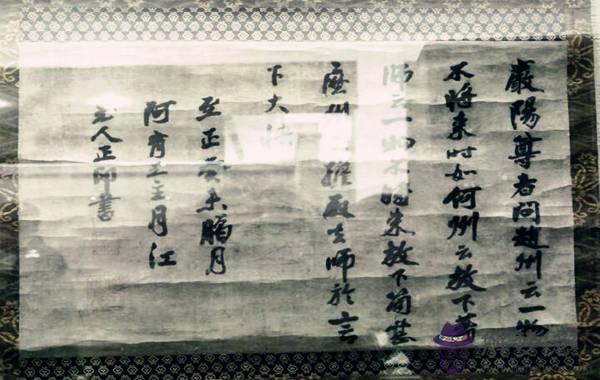 巖陽尊者問趙州云一物
不將來時如何州云放下著
師云一物不將來放下箇甚
麼州云擔取去師於言
下大悟
至正癸未臘月
阿育王主月江
老人正印書